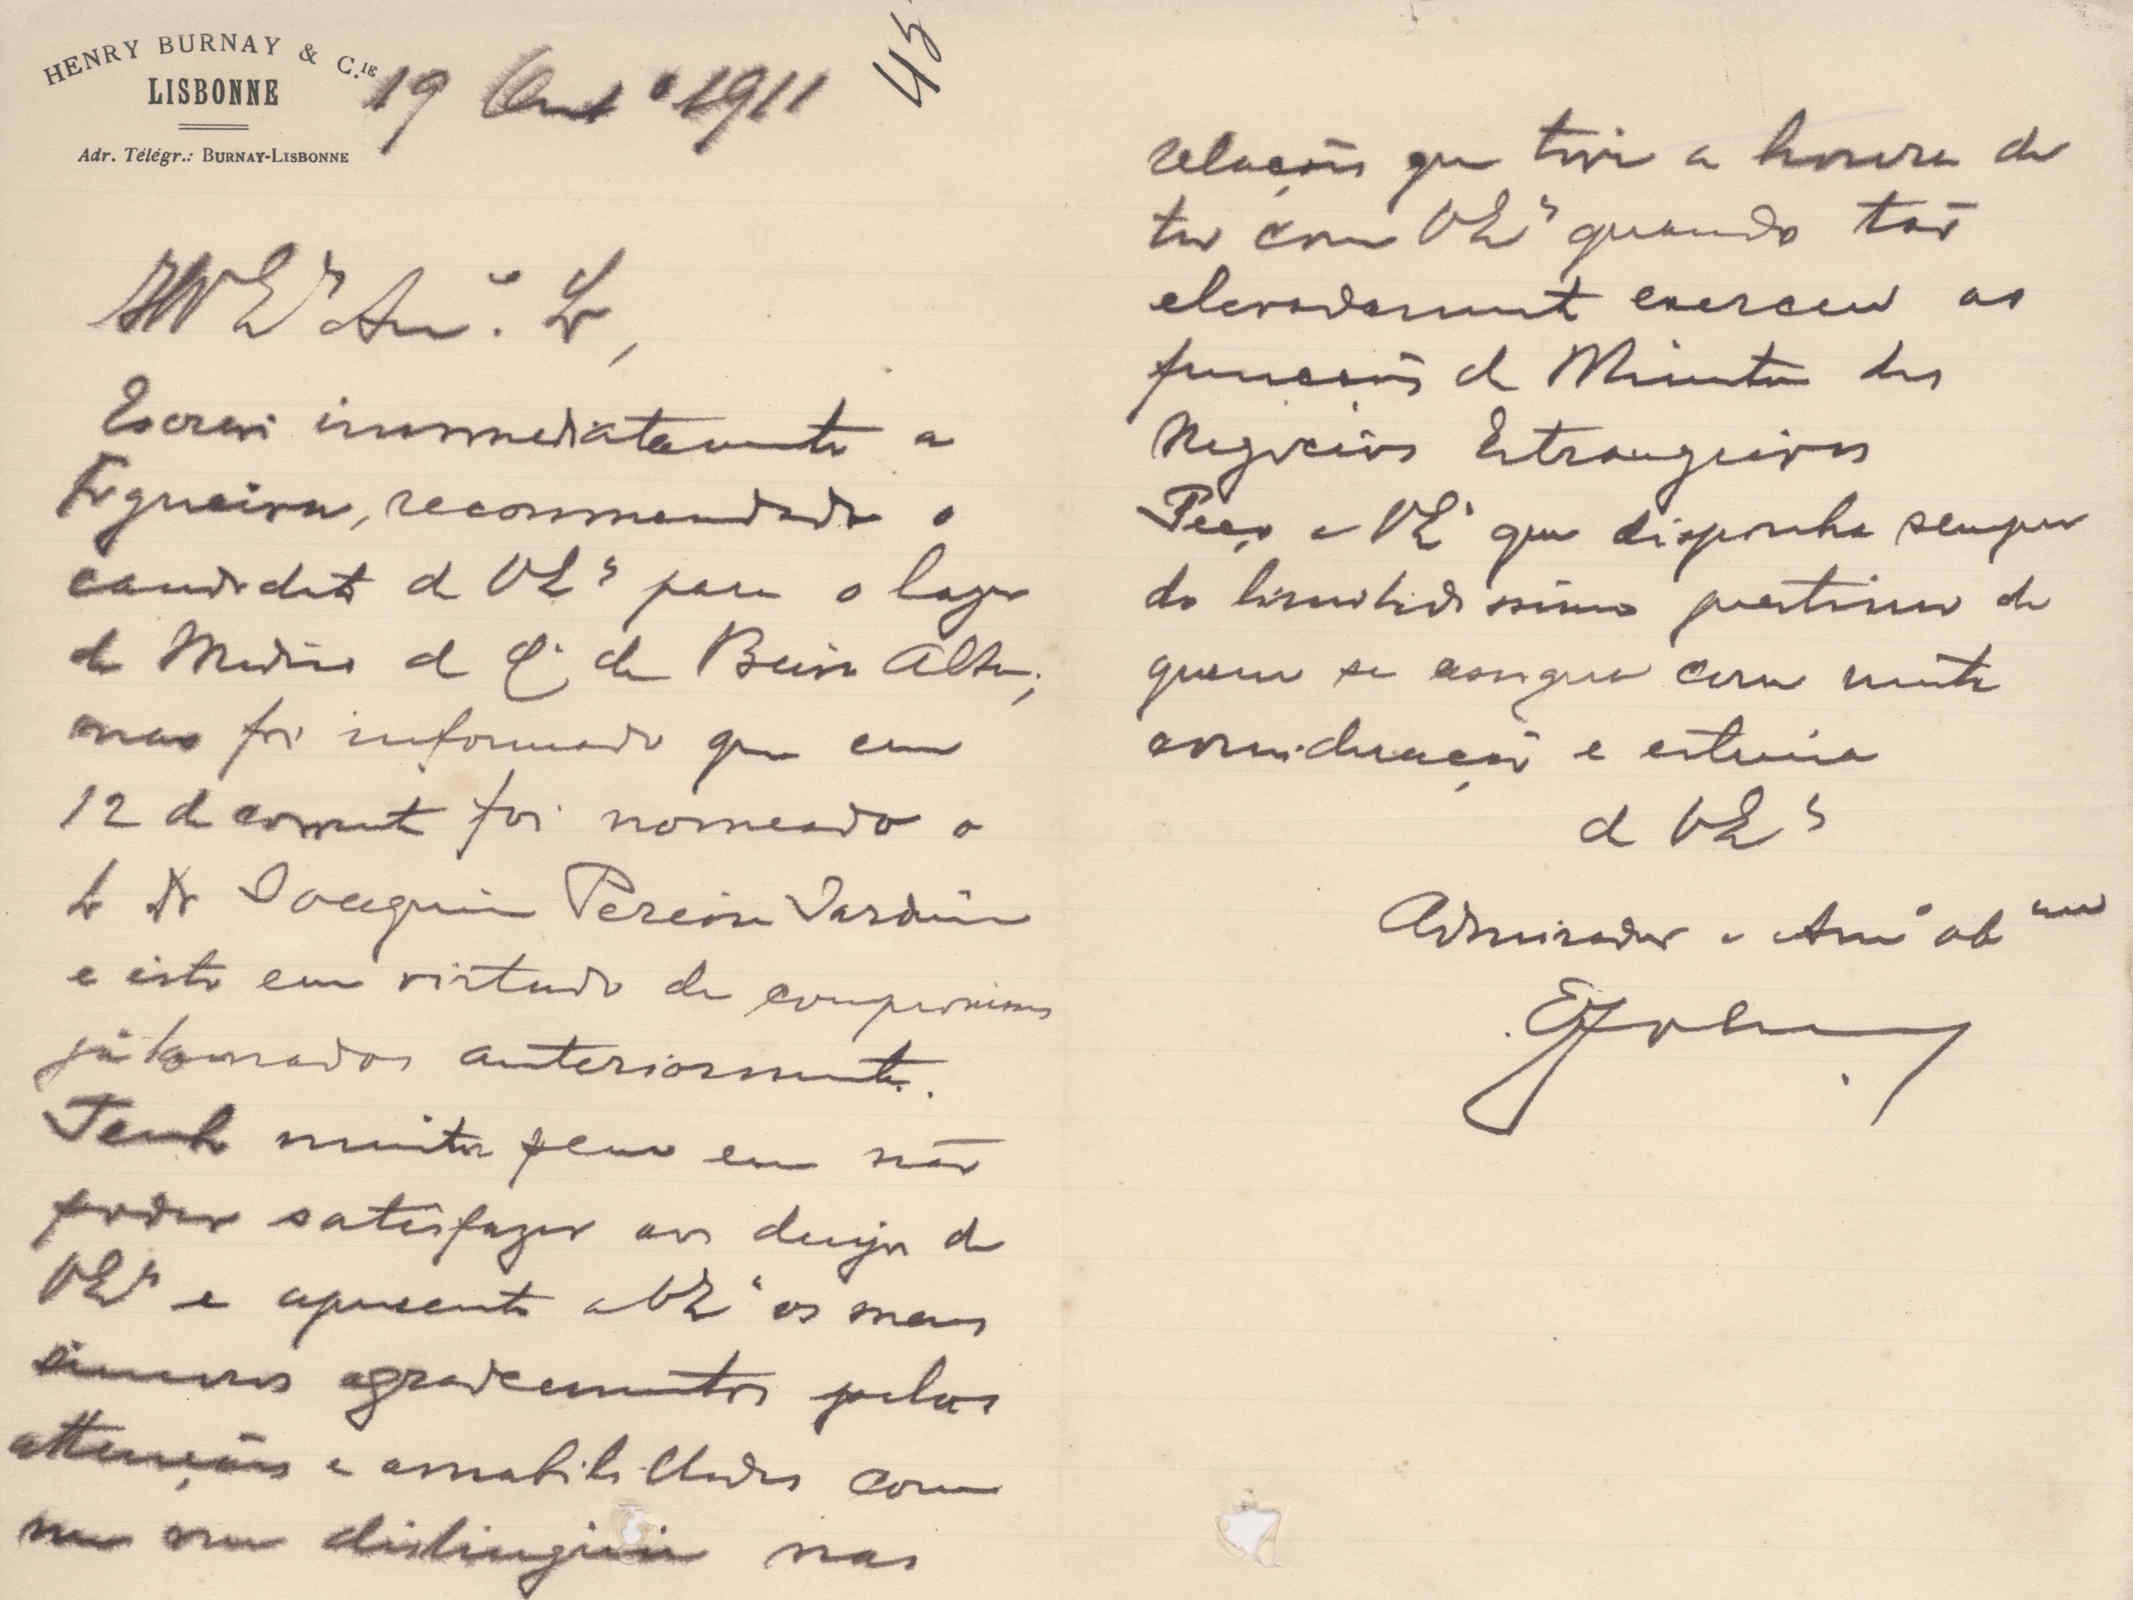 HENRY BURNAY & C.IE
LISBONNE
Adr. Télégr.: BURNAY-LISBONNE
19 Out.º 1911
45
Illmo Exmo Am.º Sr,
Escrevi immediatamente a
Figueira, recommendando o
candidato de VExª para o lugar
de Medico da Cª da Beira Alta;
mas fui informado que em
12 do corrente foi nomeado o
Sr Dr Joaquim Pereira Jardim
e isto em virtude de compromissos
já tomados anteriormente.
Tenho muita pena em não
poder satisfazer aos desejos de
VExª e apresento a VExª os meus
sinceros agradecimentos pelas
attenções e amabilidades com
que me distinguiu nas
relações que tive a honra de
ter com VExª quando tão
elevadamente exerceu as
funcções de Ministro dos
Negocios Estrangeiros
Peço a VExª que disponha sempre
do limitadissimo prestimo de
quem se assigna com muita
consideração e estima
de VExª
Admirador e Amº obmo